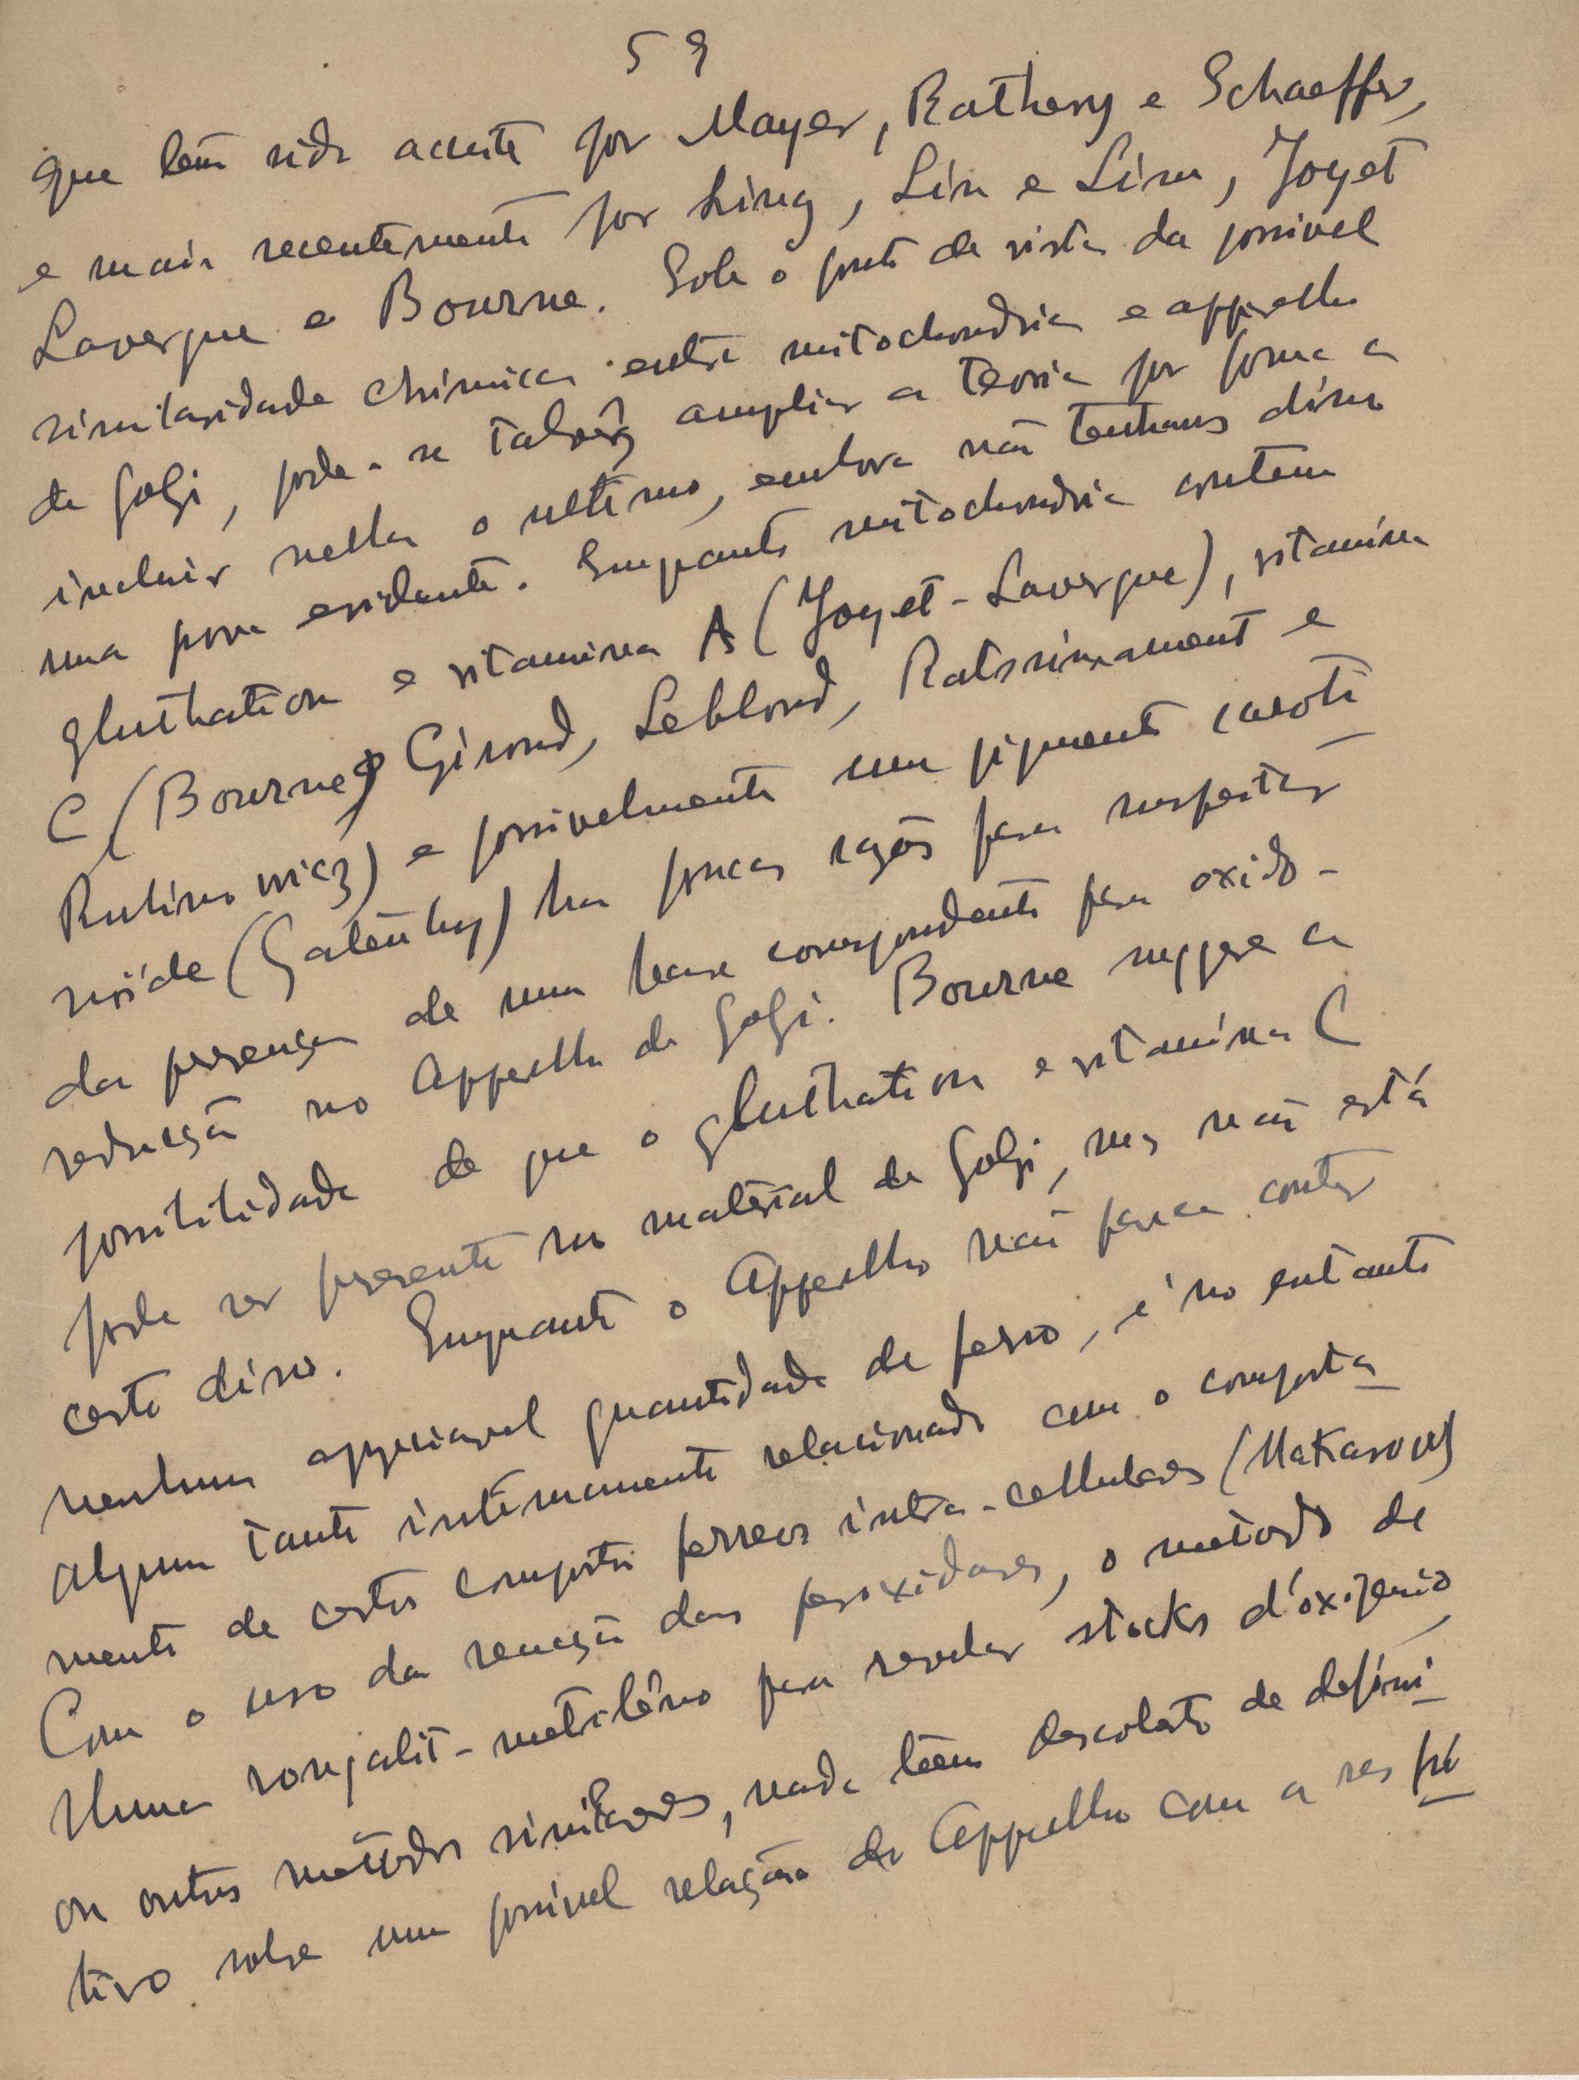 59
que tem sido aceite por Mayer, Rathery e Schaeffer,
e mais recentemente por King, Lin e Lim, Joyet
Lavergne e Bourne. Sob o ponto de vista da possivel
similaridade chimica entre mitochondria e apparelho
de Golgi, pode-se talvêz ampliar a teoria por forma a
incluir nella o ultimo, embora não tenhamos disso
uma prova evidente. Emquanto mitochondria contem
gluthation e vitamina A (Joyet-Lavergne), vitamina
C (Bourne, Giroud, Leblond, Ratsimamont e
Rutinowicz) e possivelmente um pigmento caroti
nóide (Gatenby) ha poucas razões para suspeitar
da presença de uma base correspondente para oxido-
reducção no Apparelho de Golgi. Bourne suggere a
possibilidade de que o gluthation e vitamina C
pode ser presente no material de Golgi, mas não está
certo disso. Emquanto o Apparelho não parece conter
nenhuma appreciavel quantidade de ferro, é no entanto
algum tanto intimamente relacionado com o comporta
mento de certos compostos ferreos intra-cellulares (Makarov)
Com o uso da reacção das peroxidases, o metodo de
Unna rongalit-metilêno para revelar stocks d'óxigenio,
ou outros metodos similares, nada teem descoberto de defini
tivo sobre uma possivel relação do Apparelho com a respi